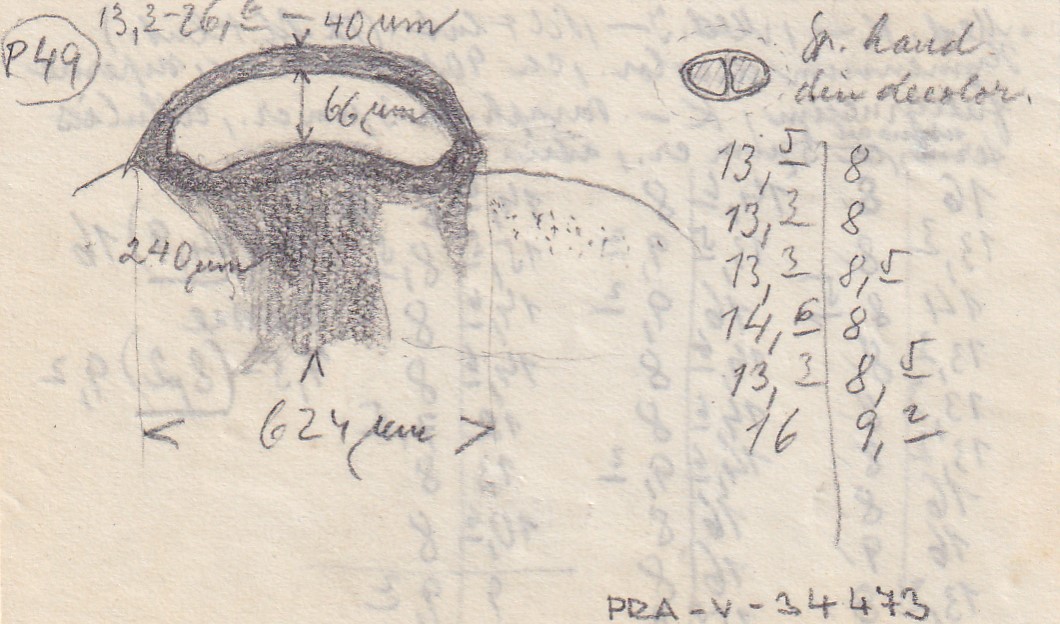 P49
13,3-26,6 - 40 µm
66 µm
240 µm
624 µm
Sp. haud
diu decolor.
13,5 | 8
13,3 | 8
13,3 | 8,5
14,6 | 8
13,3 | 8,5
16 | 9,2
PRA-V-34473